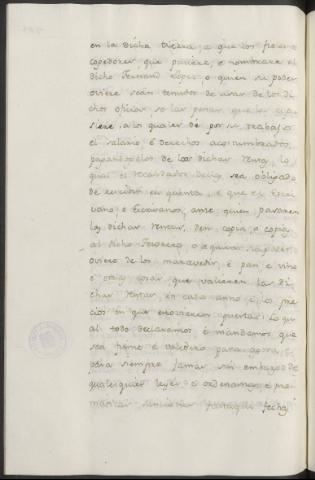 en la dicha tierra, e que los fieles e
cogedores que pusiere, e nombrare el
dicho Fernand Lopez o quien su poder
oviere sean tenudos de usar de los di
chos oficios so las penas que les
siere, a los quales dé por su trabajo
el salario, e derechos acostumbrados,
pagandoselos de las dichas rentas, lo
qual el recaudador dellas sea obligado
de recibir en cuenta, e que el Escri
vano o Escrivanos, ante quien pasaren
las dichas rentas, den copia, o copias
al dicho Ferrnando, o a quien su poder
oviere de los maravedis, e pan e vino
e otras cosas que valieren las di
chas rentas, en cada anno e los pre
cios en que estovieren puestas. Lo qu
al todo declaramos e mandamos que
sea firme e valedero para agora, e
para siempre jamas, sin embargo de
qualesquier leyes, e ordenanzas e pre
maticas fasta aqui fechas